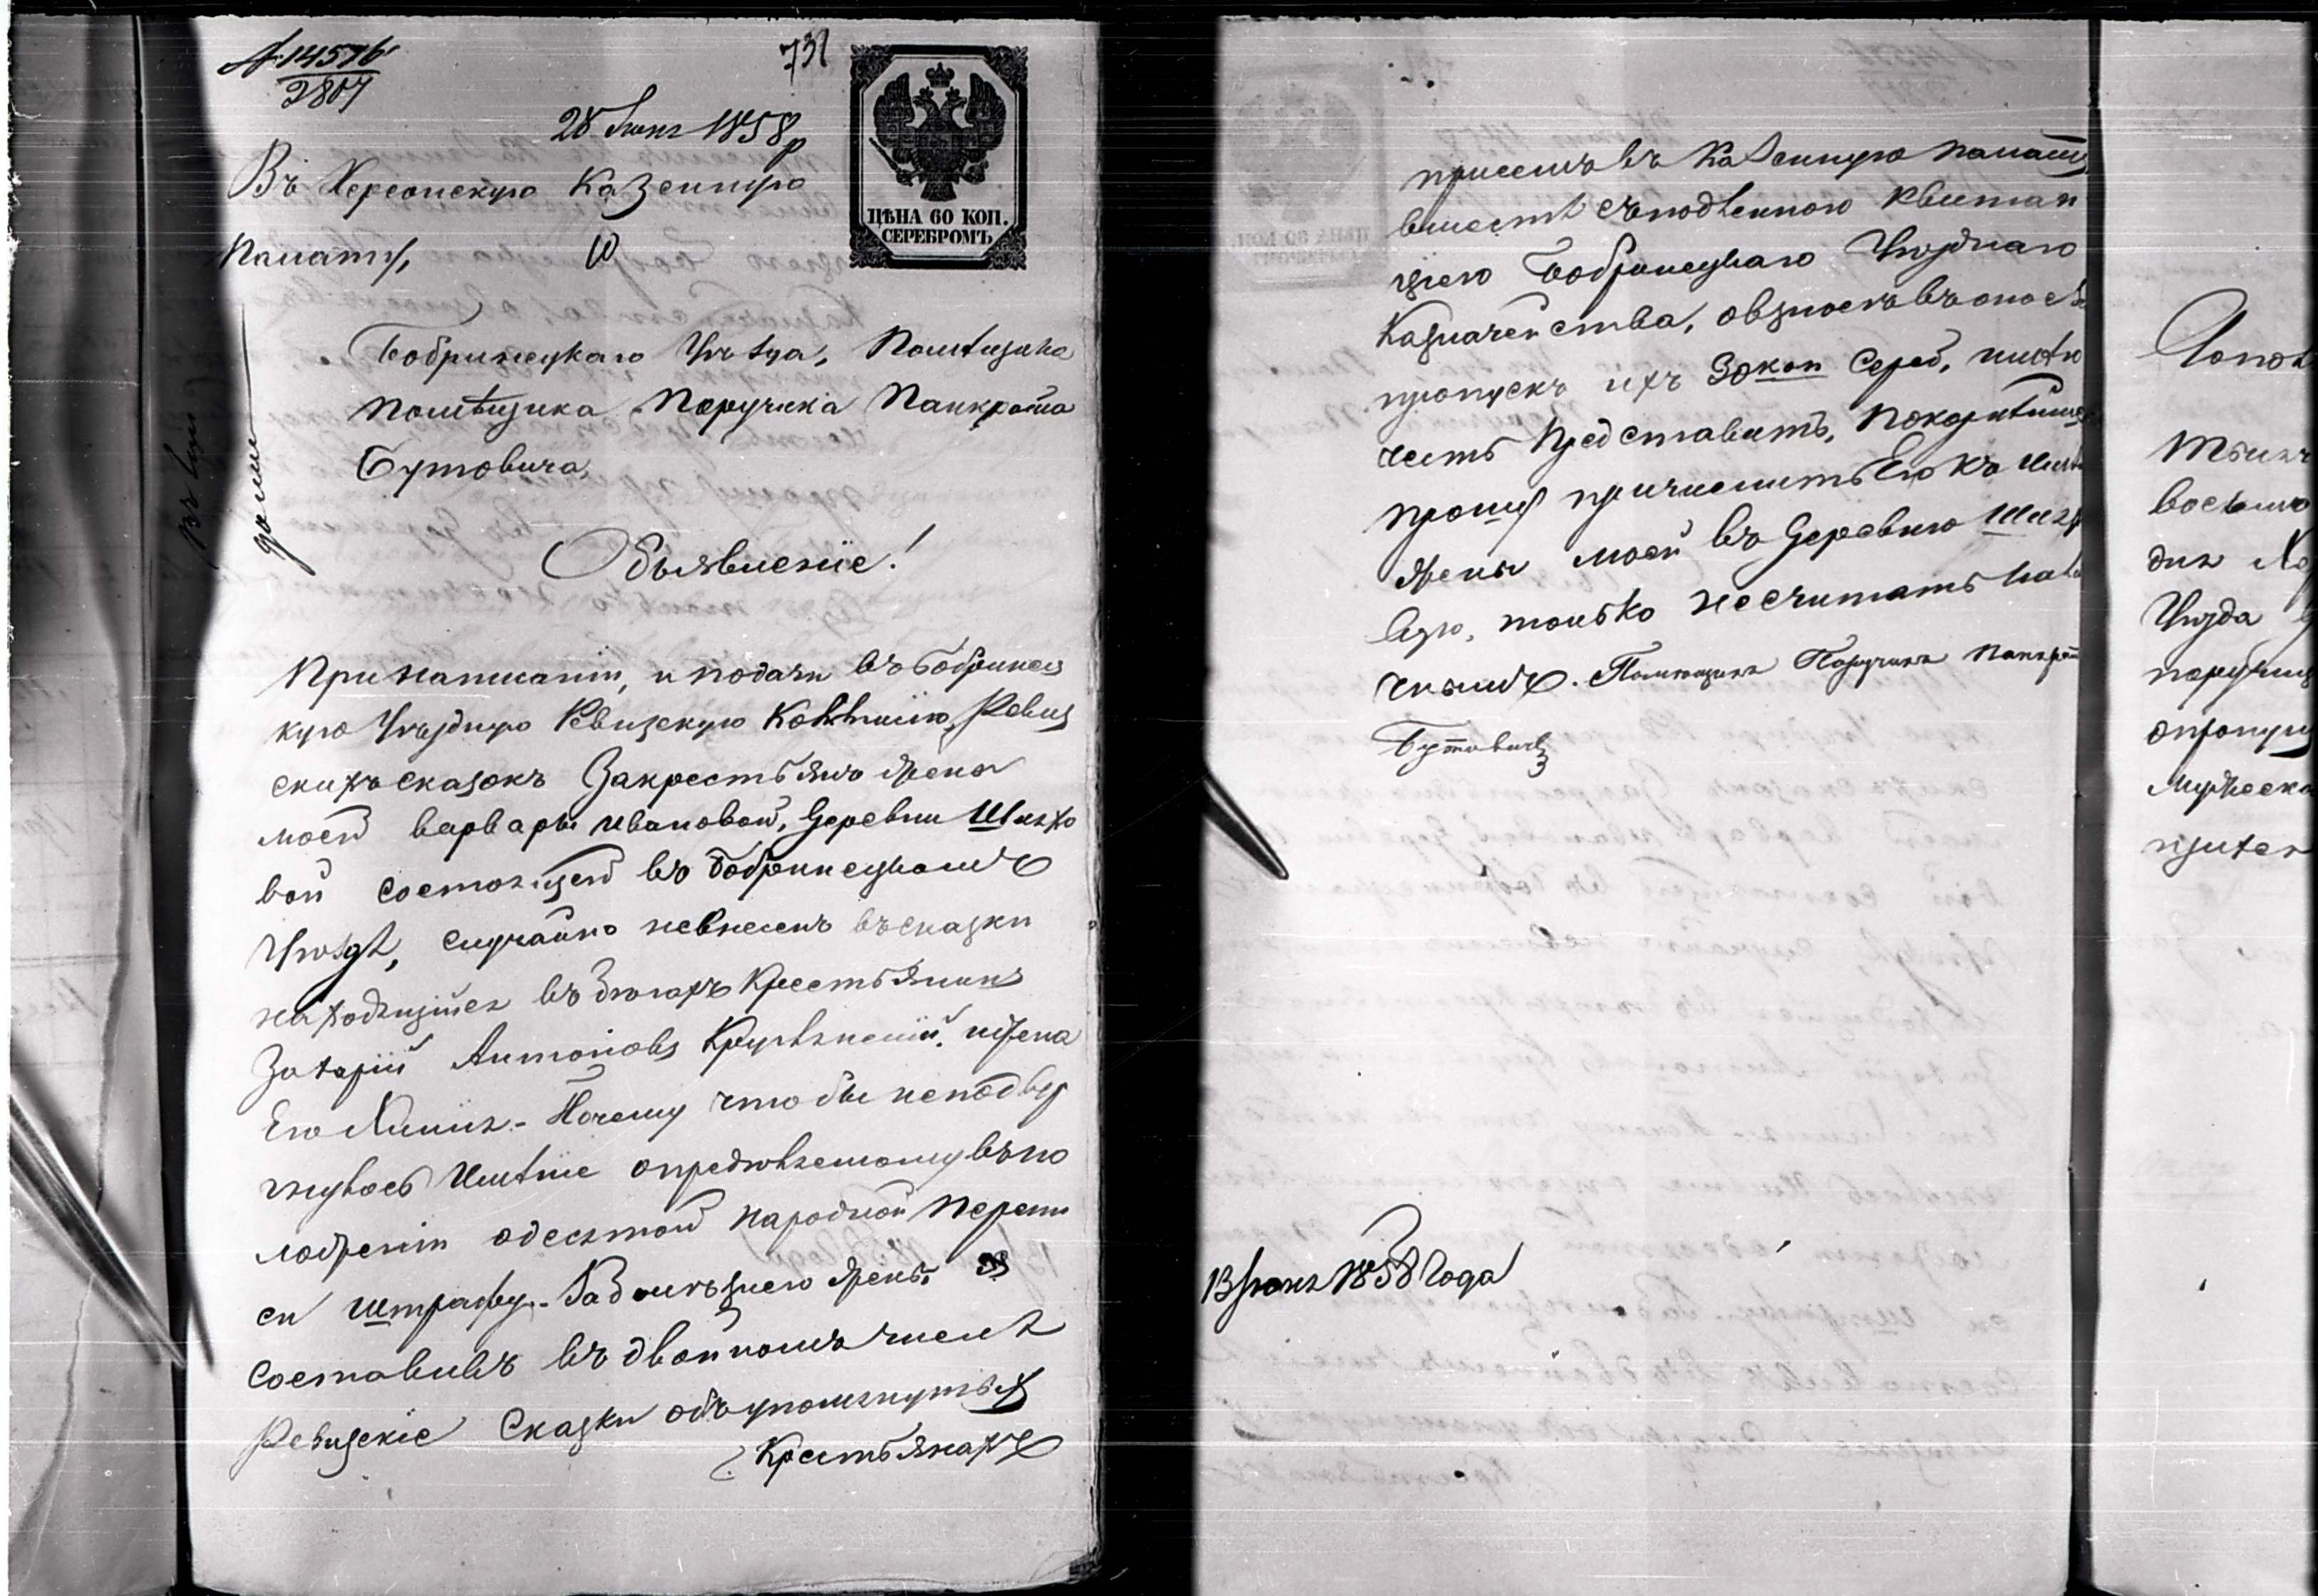 № 14576
2807
731
28 Июня 1858
ЦѢНА 60 КОП.
СЕРЕБРОМЪ
Въ Херсонскую Казенную
Палату,
Бобринецкаго Уѣзда, Помѣщика
помѣщика Поручика Панкрата
Бутовича
Объявленіе!
При написаніи, и подачи въ Бобринец
кую Уѣздную Ревизскую Коммисію, Ревиз
скихъ сказокъ За крестьянъ жены
моей варвары ивановой, деревни Шихо
вой состоящей въ Бобринецкомъ
Уѣздѣ, случайно невнесенъ въ сказки
находящійся въ бѣгахъ Крестьянинъ
Захарій Антоновъ и жена
Его Почему чтобы неподвер
гнулось Имѣніе опредѣляемому въ по
ложеніи одесятой народной Перепи
си штрафу.
Составивъ въ двойномъ числѣ
Ревизскіе Сказки объ упомянутыхъ
Крестьянахъ
въ Казенную палату
вмѣстѣ съ подлинною Квитан
ціею Бобринецкаго Уѣзднаго
Казначейства, о взносѣ въ оное за
пропускъ ихъ 30 коп Сереб, имѣю
честь Представить, Покорнѣйше
прошу причислить Его къ имѣ
жены моей въ Деревню Шихо
вую, только несчитать
Помѣщикъ Поручикъ Панкрат
Бутовичъ
13 Июня 1858 Года
восьмо
Уѣзда
поручи
опропу
мужеска